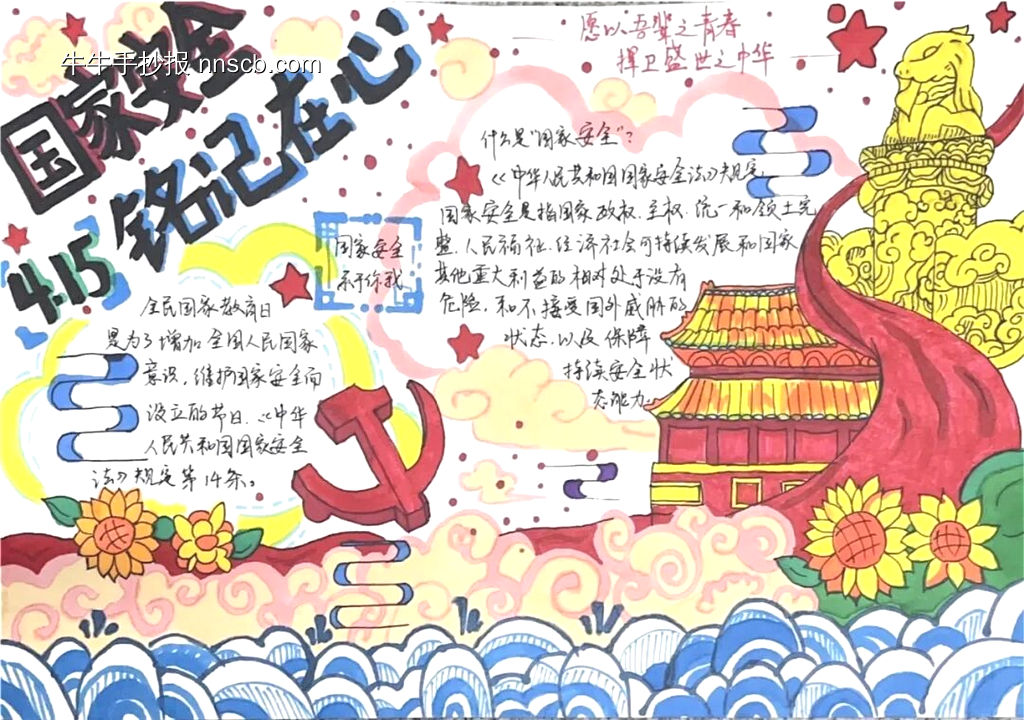 国家安全
牛牛手抄报 nnscb.com
4.15 铭记在心
愿以吾辈之青春
捍卫盛世之中华
什么是"国家安全"?
《中华人民共和国国家安全法》规定
国家安全是指国家政权、主权、统一和领土完
整、人民福祉、经济社会可持续发展和国家
其他重大利益的相对处于没有
危险，和不接受国外威胁的
状态，以及保障
持续安全状
态能力。
国家安全
系于你我
全民国家教育日
是为了增加全国人民国家
意识，维护国家安全而
设立的节日。《中华
人民共和国国家安全
法》规定第14条。